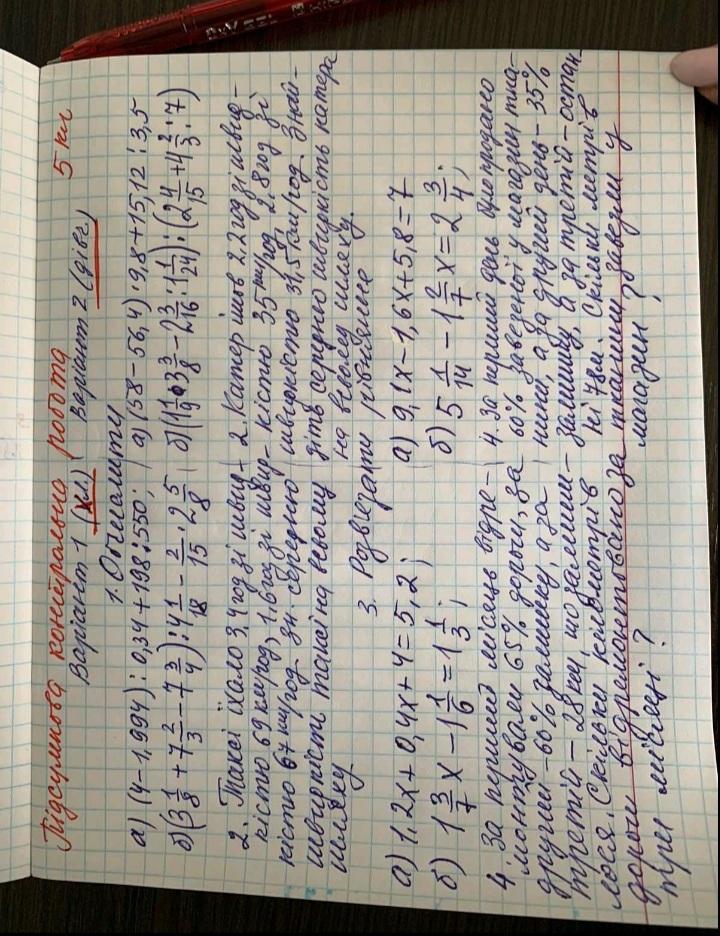 Підсумкова контрольна робота 5 кл
Варіант 1 (хл) Варіант 2 (дівч)
1. Обчислити
а) (4-1,994) : 0,34 + 198 : 550; а) (58-56,4) · 9,8 + 15,12 : 3,5
б) (3 1/9 + 7 2/3 - 7 3/4) : 4 1/18 - 2/15 · 2 5/8 б) (1 1/9 · 3 3/8 - 2 3/16 · 1 1/24) : (2 4/15 + 4 2/3 : 7)
2. Таксі їхало 3,4 год зі швид-
кістю 69 км/год, 1,6 год зі швид-
кістю 67 км/год. Зн. середню
швидкість таксі на всьому
шляху
2. Катер ішов 2,2 год зі швид-
кістю 35 км/год, 2,8 год зі
швидкістю 31,5 км/год. Знай-
діть середню швидкість катера
на всьому шляху.
3. Розв'язати рівняння
а) 1,2x + 0,4x + 4 = 5,2; а) 9,1x - 1,6x + 5,8 = 7
б) 1 3/7 x - 1 1/6 = 1 1/3; б) 5 1/14 - 1 2/7 x = 2 3/4;
4. За перший місяць відре-
монтували 65% дороги, за
другий - 60% залишку, а за
третій - 28 км, що залиши-
лося. Скільки кілометрів
дороги відремонтовано за
три місяці?
4. За перший день було продано
60% завезеної у магазин тка-
нини, а за другий день - 35%
залишку, а за третій - остан
ні 78 м. Скільки метрів
тканини завезли у
магазин?